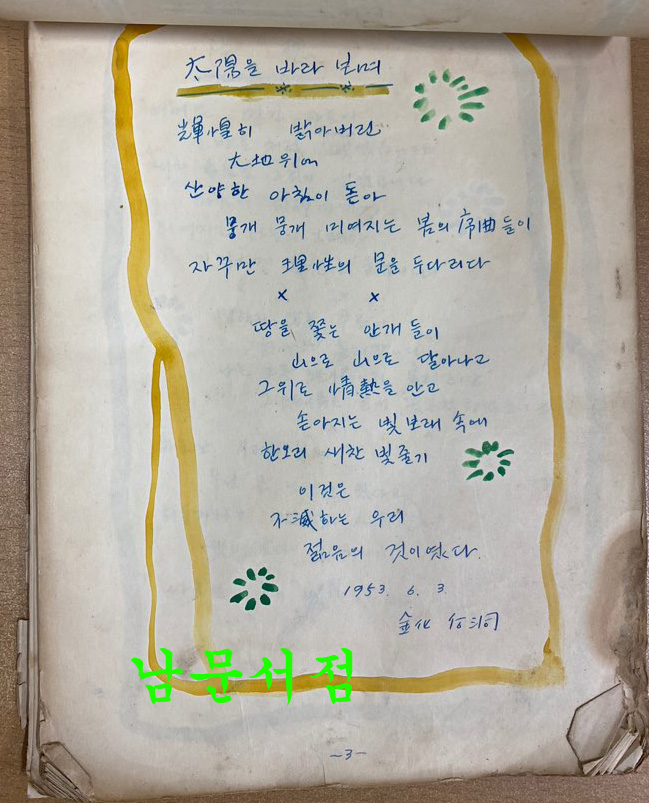 太陽을 바라 보며
輝煌히 밝아버린
大地위에
산양한 아침이 돋아
뭉개 뭉개 미여지는 봄의 序曲들이
자꾸만 理性의 문을 두다리다
x x
땅을 쫓는 안개들이
山으로 山으로 달아나고
그위로 情熱을 안고
손아지는 빛보래 속에
한오리 새찬 빛줄기
이것은
不滅하는 우리
젊음의 것이였다.
1953. 6. 3.
金化
남문서점
-3-